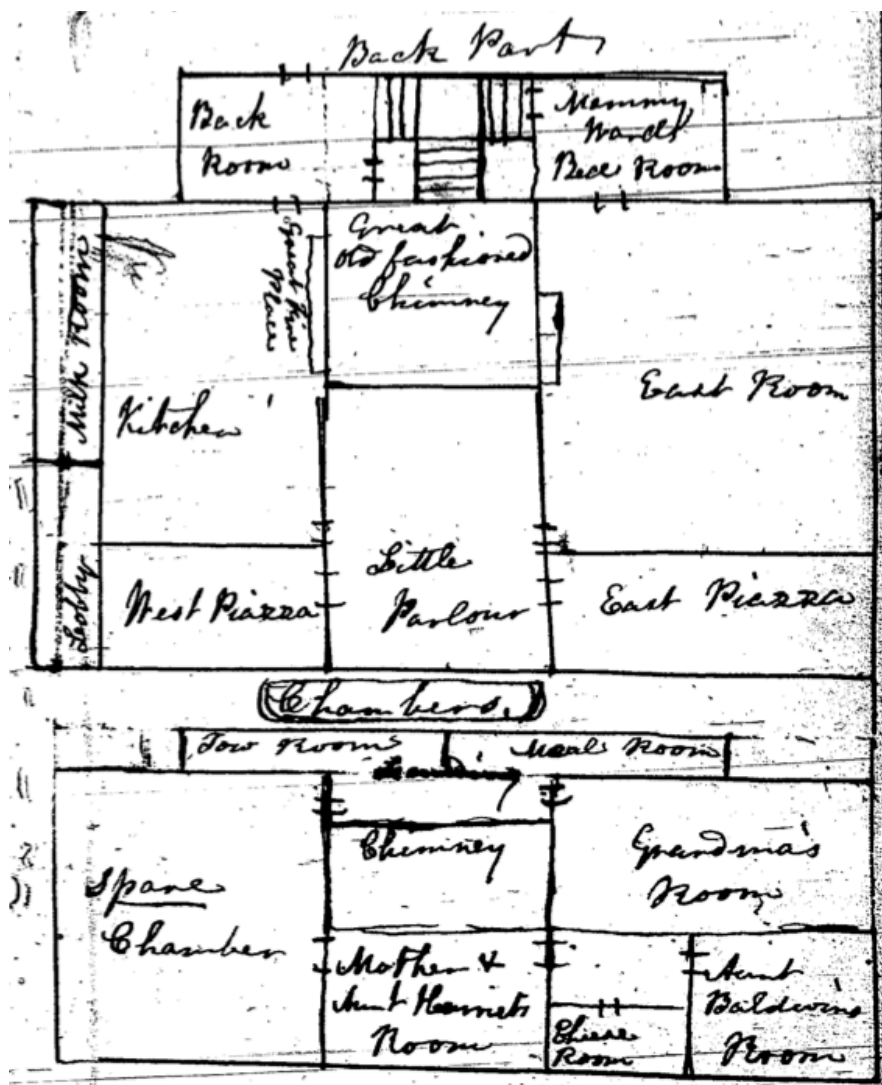 Back Part
Back
Room
Mommy
Wards
Bed Room
Milk Room
Great Fire
Place
Great
Old fashioned
Chimney
Kitchen
East Room
Lobby
West Piazza
Little
Parlour
East Piazza
Chambers.
Tow Room
Meal Room
Landing
Chimney
Grandma's
Room
Spare
Chamber
Mother &
Aunt Harriets
Room
Cheese
Room
Aunt
Baldwins
Room